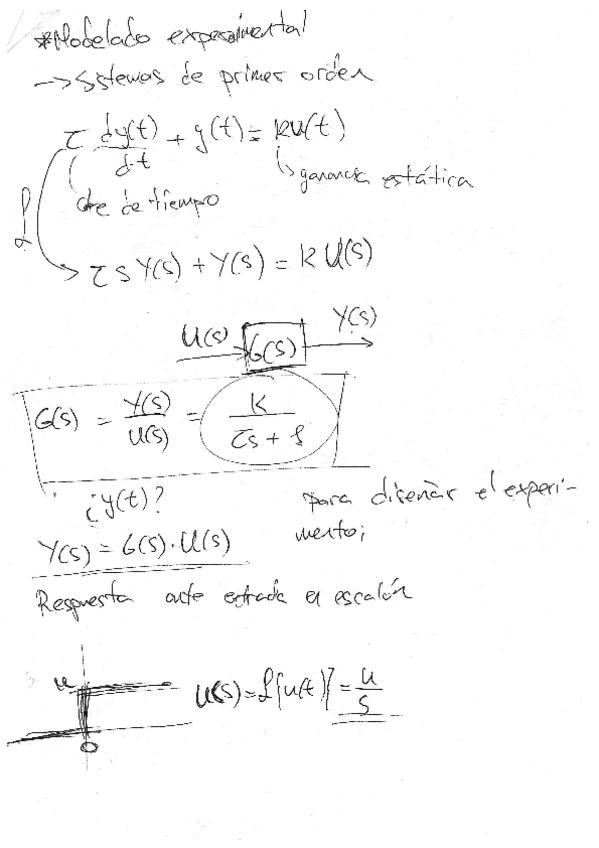 *Modelado experimental
-->Sistemas de primer orden
τ dy(t)/dt + y(t) = ku(t)
↳ ganancia estática
cte de tiempo
ℒ
τsY(s) + Y(s) = k U(s)
U(s) G(s) Y(s)
G(s) = Y(s)/U(s) = k/(τs + 1)
¿y(t)? para diseñar el experi-
Y(s) = G(s)·U(s) mento;
Respuesta ante entrada en escalón
u
U(s) = ℒ[u(t)] = u/s
0